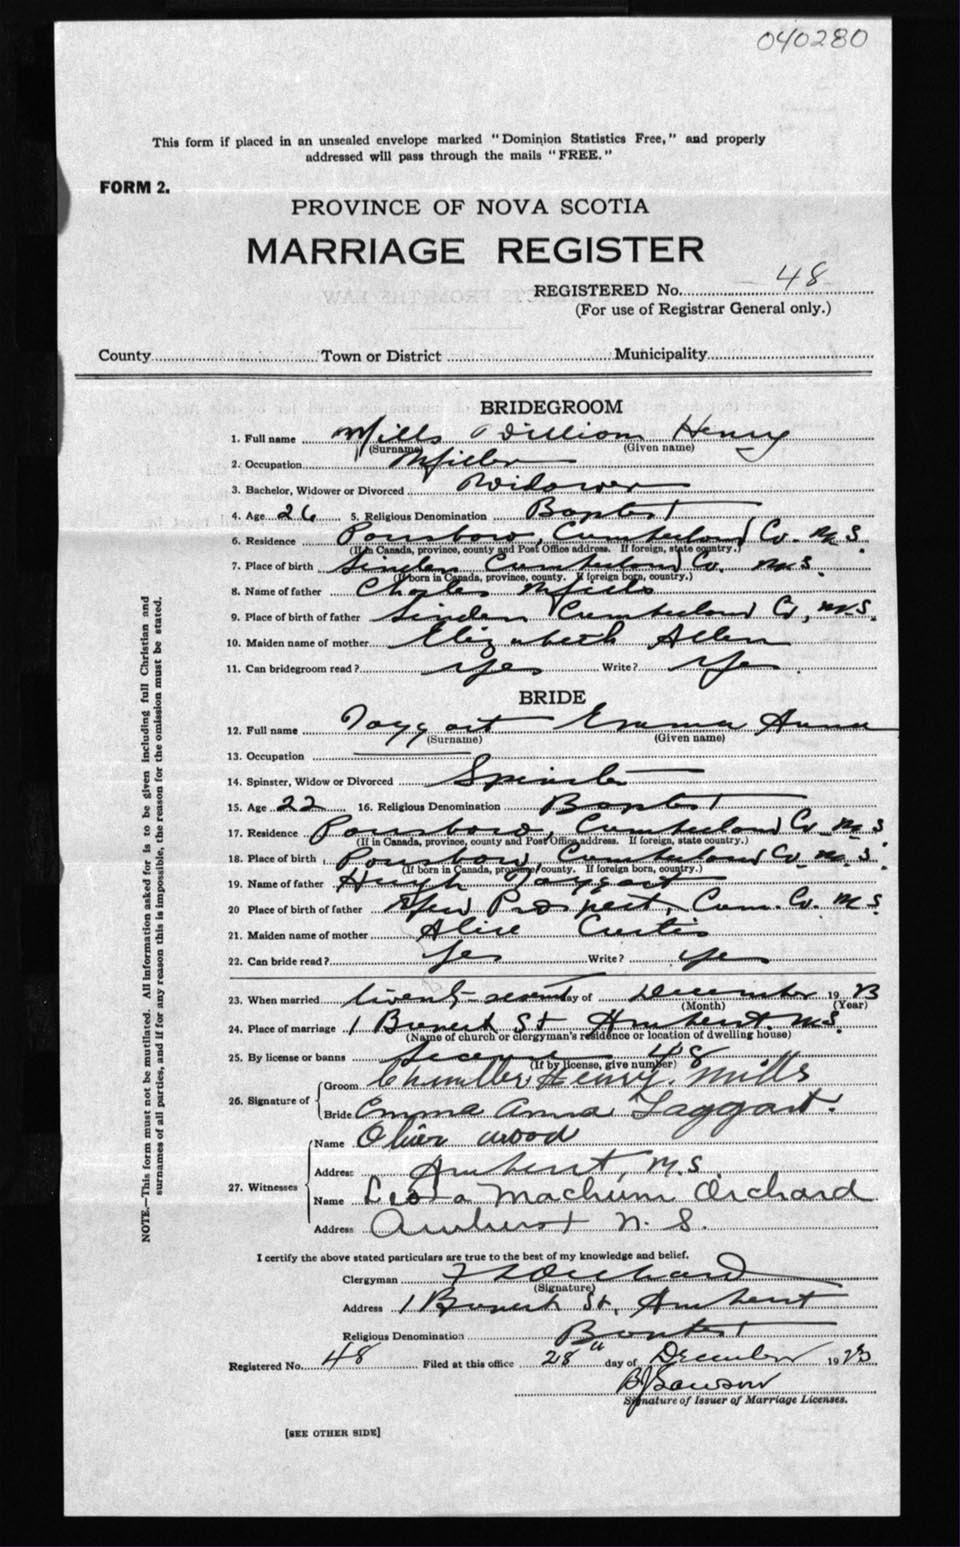 040280
This form if placed in an unsealed envelope marked "Dominion Statistics Free," and properly
addressed will pass through the mails "FREE."
FORM 2.
PROVINCE OF NOVA SCOTIA
MARRIAGE REGISTER
REGISTERED No. 48
(For use of Registrar General only.)
County Town or District Municipality
BRIDEGROOM
1. Full name Mills William Henry
(Surname) (Given name)
2. Occupation
3. Bachelor, Widower or Divorced Widower
4. Age 26 5. Religious Denomination Baptist
6. Residence Parrsboro, Cumberland Co. N.S.
(If in Canada, province, county and Post Office address. If foreign, state country.)
7. Place of birth Linden Cumberland Co. N.S.
(If born in Canada, province, county. If foreign born, country.)
8. Name of father Charles Mills
9. Place of birth of father Linden Cumberland Co, N.S.
10. Maiden name of mother Elizabeth Allen
11. Can bridegroom read? Yes Write? Yes
BRIDE
12. Full name Taggart Emma Anna
(Surname) (Given name)
13. Occupation
14. Spinster, Widow or Divorced Spinster
15. Age 22 16. Religious Denomination Baptist
17. Residence Parrsboro, Cumberland Co. N.S.
(If in Canada, province, county and Post Office address. If foreign, state country.)
18. Place of birth Parrsboro, Cumberland Co. N.S.
(If born in Canada, province, county. If foreign born, country.)
19. Name of father Hugh Taggart
20 Place of birth of father New Prospect, Cum. Co. N.S.
21. Maiden name of mother Alice Curtis
22. Can bride read? Yes Write? Yes
23. When married twenty-seventh day of December 1923
(Month) (Year)
24. Place of marriage 1 St Amherst. N.S.
(Name of church or clergyman's residence or location of dwelling house)
25. By license or banns License 48
(If by license, give number)
26. Signature of
Groom Henry. Mills
Bride Emma Anna Taggart.
27. Witnesses
Name Oliver Wood
Address Amherst, N.S.
Name Machum Orchard
Address Amherst N. S.
I certify the above stated particulars are true to the best of my knowledge and belief.
Clergyman Orchard
(Signature)
Address 1 St, Amherst
Religious Denomination Baptist
Registered No. 48 Filed at this office 28" day of December 1923
Signature of Issuer of Marriage Licenses.
[SEE OTHER SIDE]
NOTE.—This form must not be mutilated. All information asked for is to be given including full Christian and
surnames of all parties, and if for any reason this is impossible, the reason for the omission must be stated.